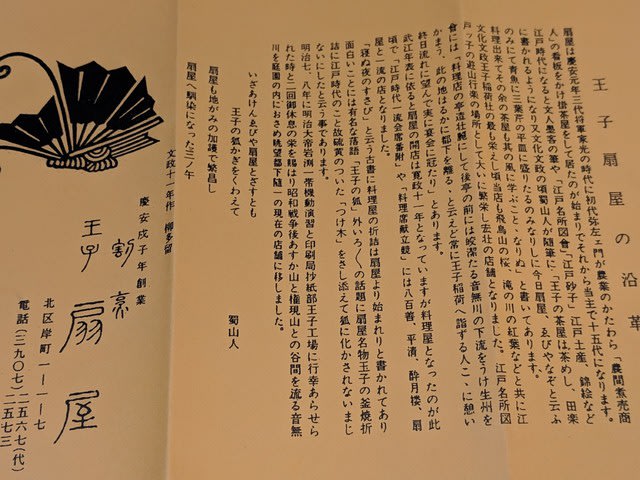 王子扇屋の沿革
扇屋は慶安元年三代将軍家光の時代に初代弥左ェ門が農業のかたわら「農間煮売商
人」の看板をかけ掛茶屋をして居たのが始まりでそれから当主で十五代になります。
江戸時代になると文人墨客の筆や「江戸名所図會「江戸砂子」江戸土産、錦絵など
に書かれるようになり又文化文政の頃蜀山人が随筆に「王子の茶屋は茶めし、田楽
のみにて青魚に三葉芹の平皿に盛りたるのみなりしに今日扇屋、ゑびやなぞと云ふ
料理出来てその余の茶屋も其の風に学ぶこと、なりぬ」と書いてあります。
文化文政王子稲荷社の最も栄えし頃当店も飛鳥山の桜、滝の川の紅葉などと共に江
戸ッ子の遊山行楽の場所として大いに繁栄し宏壮の店舗となりました。江戸名所図
會には「料理店の亭造壮麗にして後亭の前には皎潔たる音無川の下流をうけ生州を
かまう、此の地はるかに都下を離る、と云えど常に王子稲荷へ詣する人こゝに憩い
終日流れに望んで実に宴会に冠たり」とあります。
武江年表に依ると扇屋の開店は寛政十一年となっていますが料理屋となったのが此
頃で「江戸時代一流会席番附」や「料理席献立競」には八百善、平清、酔月楼、扇
屋と一流の店となりました。
「寝ぬ夜のすさび」と云う古書に料理屋の折詰は扇屋より始まれりと書かれてあり
面白いことには有名な落語「王子の狐」外いろ〳〵の話題に扇屋名物王子の釜焼折
詰に江戸時代のこと故硫黄のついた「つけ木」をさし添えて狐に化かされないまし
ないにしたと云う事であります。
明治七、八年に明治大帝岩渕一帯機動演習と印刷局抄紙部王子工場に行幸あらせら
れた時と二回御休息の栄を賜はり昭和戦争後あすか山と権現山との谷間を流る音無
川を庭園の内におさめ眺望都下随一の現在の店舗に移しました。
いざあけんゑびや扇屋とざすとも
王子の狐かぎをくわえて
蜀山人
扇屋も地がみの加護で繁昌し
扇屋へ馴染になった三ノ午
文政十一年作 柳多留
慶安戌子年創業
割烹
王子扇屋
北区岸町一ー一ー七
電話(三九〇七)二五六七(代)
二五七三